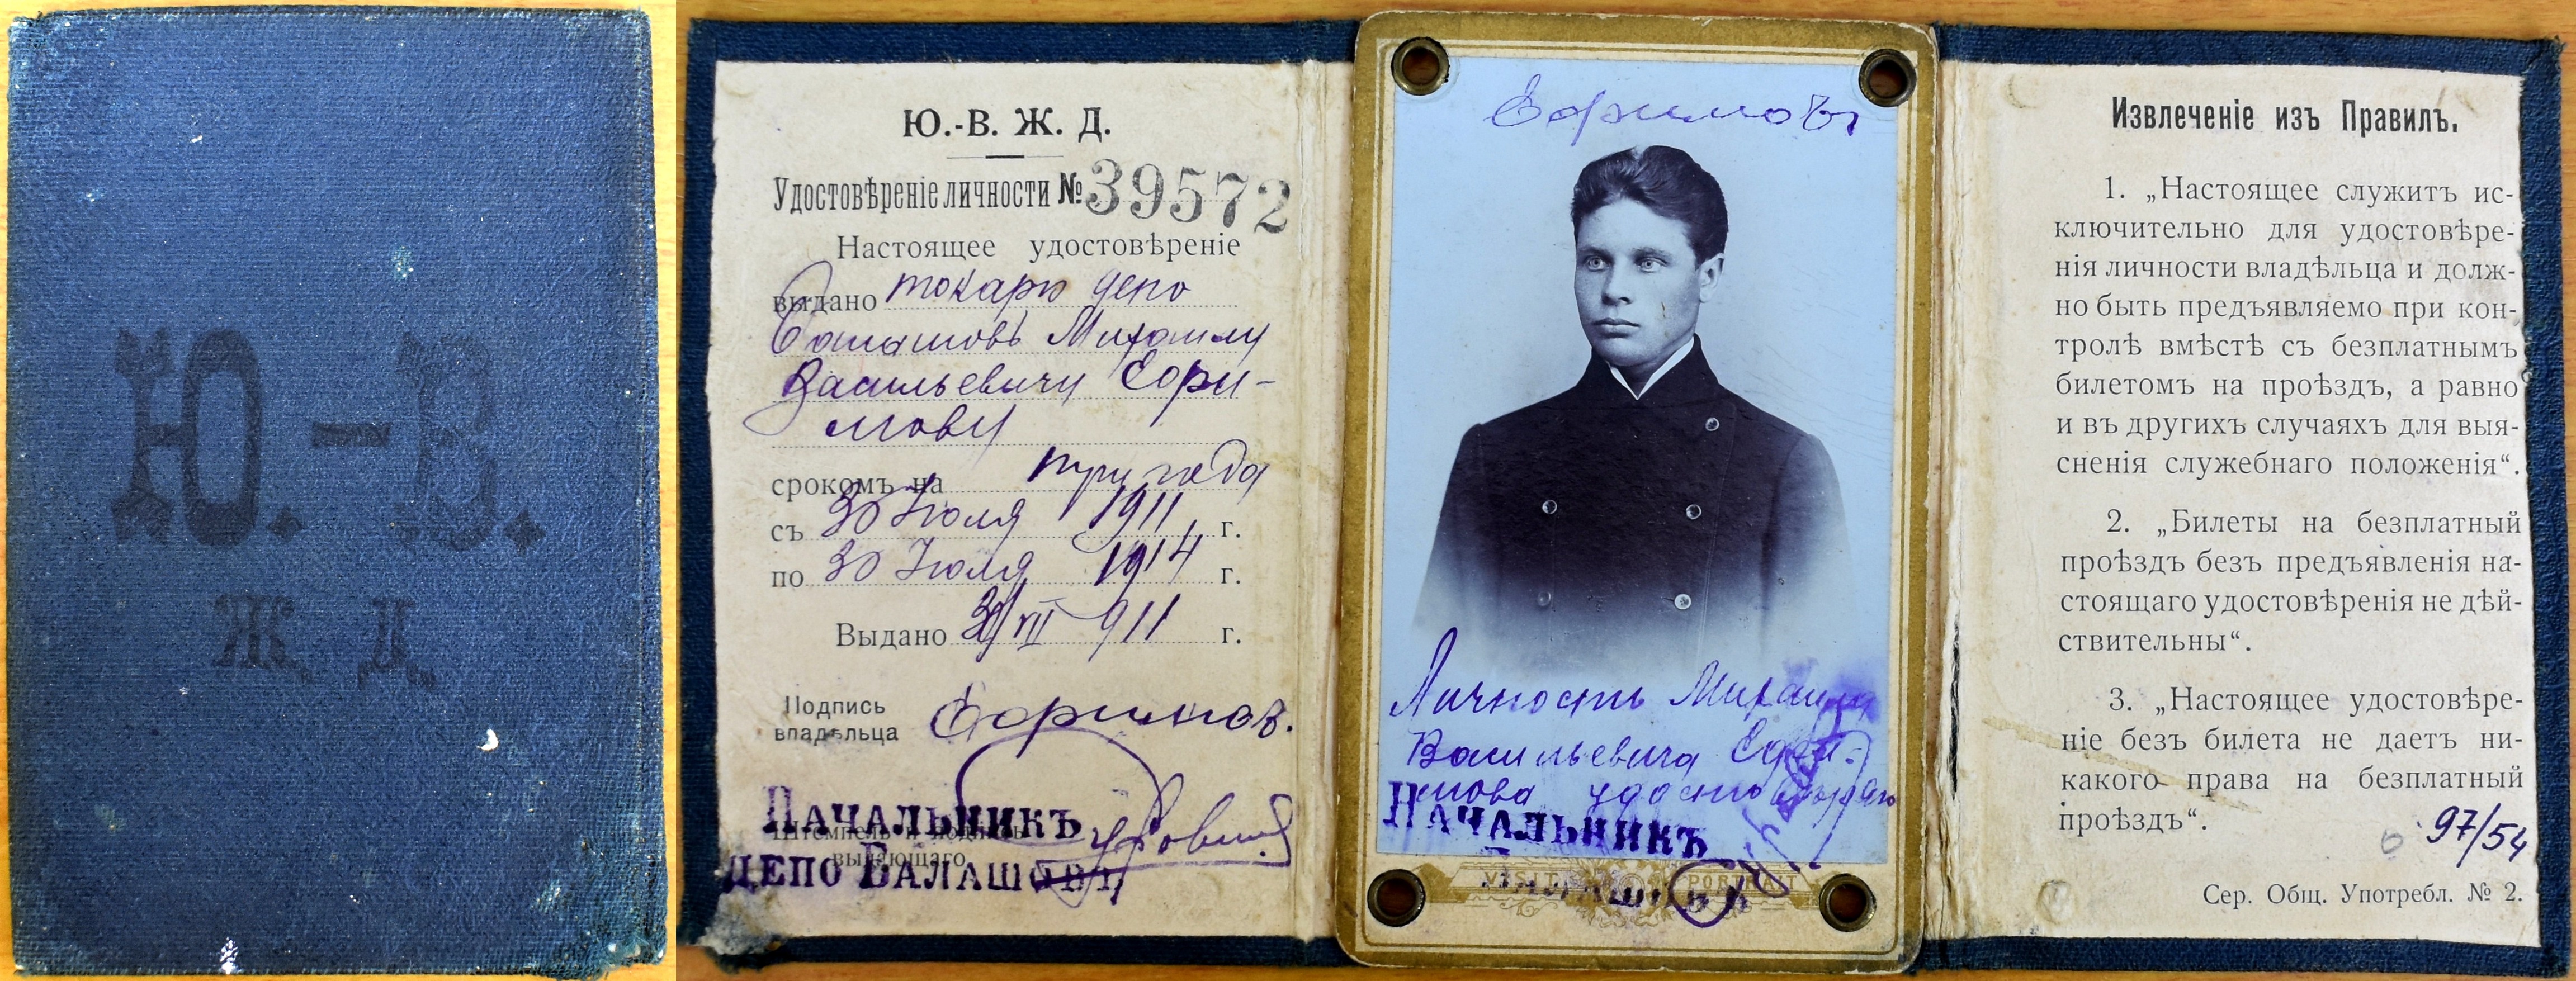 Ю.-В.
Ж. Д.
Ю.-В. Ж. Д.
Удостовѣреніе личности № 39572
Настоящее удостовѣреніе
выдано токарю депо
Балашовъ Михаилу
Васильевичу Ефи-
мову
срокомъ на три года
съ 30 Іюля 1911 г.
по 30 Іюля 1914 г.
Выдано 30/VII 911 г.
Подпись
владѣльца Ефимов.
Штемпель и подпись
выдающаго
НАЧАЛЬНИКЪ
ДЕПО БАЛАШОВЪ
Ефимовъ
Личность Михаила
Васильевича Ефи-
мова удостовѣряю
НАЧАЛЬНИКЪ
БАЛАШОВЪ
VISIT PORTRAIT
Извлеченіе изъ Правилъ.
1. „Настоящее служитъ ис-
ключительно для удостовѣре-
нія личности владѣльца и долж-
но быть предъявляемо при кон-
тролѣ вмѣстѣ съ безплатнымъ
билетомъ на проѣздъ, а равно
и въ другихъ случаяхъ для выя-
сненія служебнаго положенія“.
2. „Билеты на безплатный
проѣздъ безъ предъявленія на-
стоящаго удостовѣренія не дѣй-
ствительны“.
3. „Настоящее удостовѣре-
ніе безъ билета не даетъ ни-
какого права на безплатный
проѣздъ“.
97/54
Сер. Общ. Употребл. № 2.